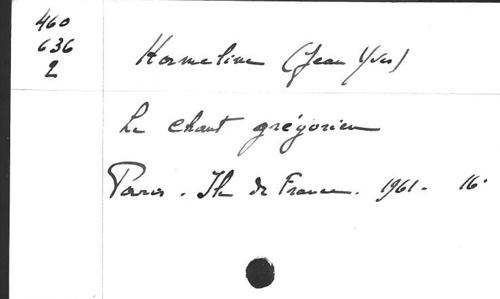 460
636
2
Hameline (Jean Yves)
Le chant grégorien
Paris. Ile de France. 1961. 16°